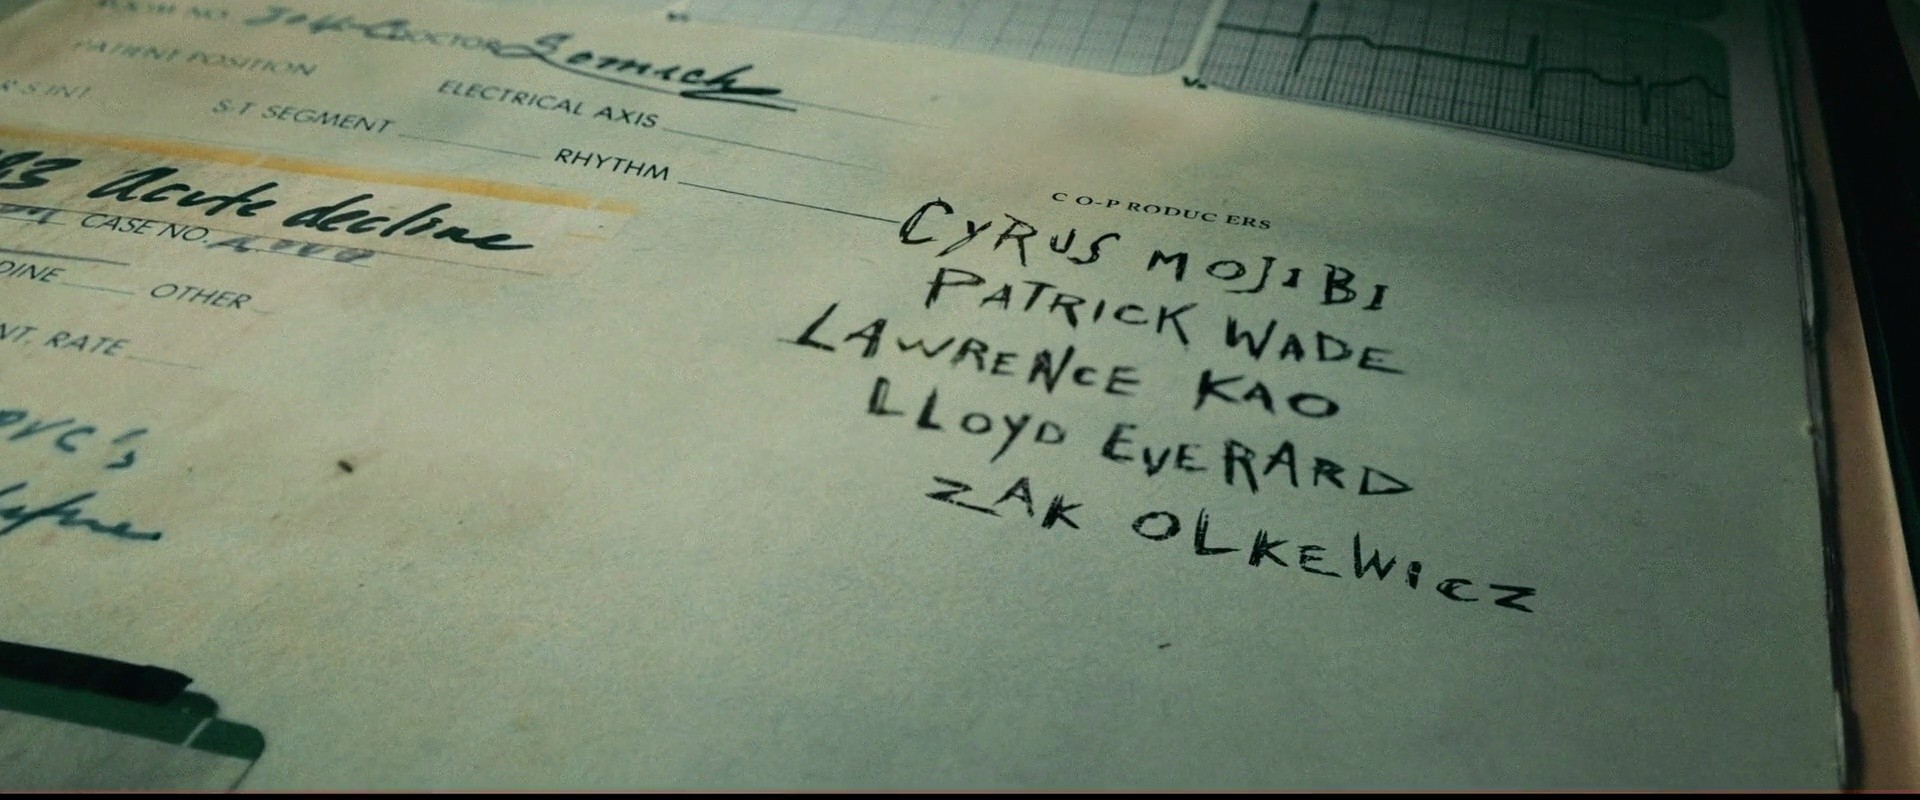 ROOM NO. DOCTOR Lomich
PATIENT POSITION
ELECTRICAL AXIS
S-T SEGMENT
RHYTHM
Acute decline
CASE NO.
OTHER
RATE
PVC's
CO-PRODUCERS
CYRUS MOJIBI
PATRICK WADE
LAWRENCE KAO
LLOYD EVERARD
ZAK OLKEWICZ